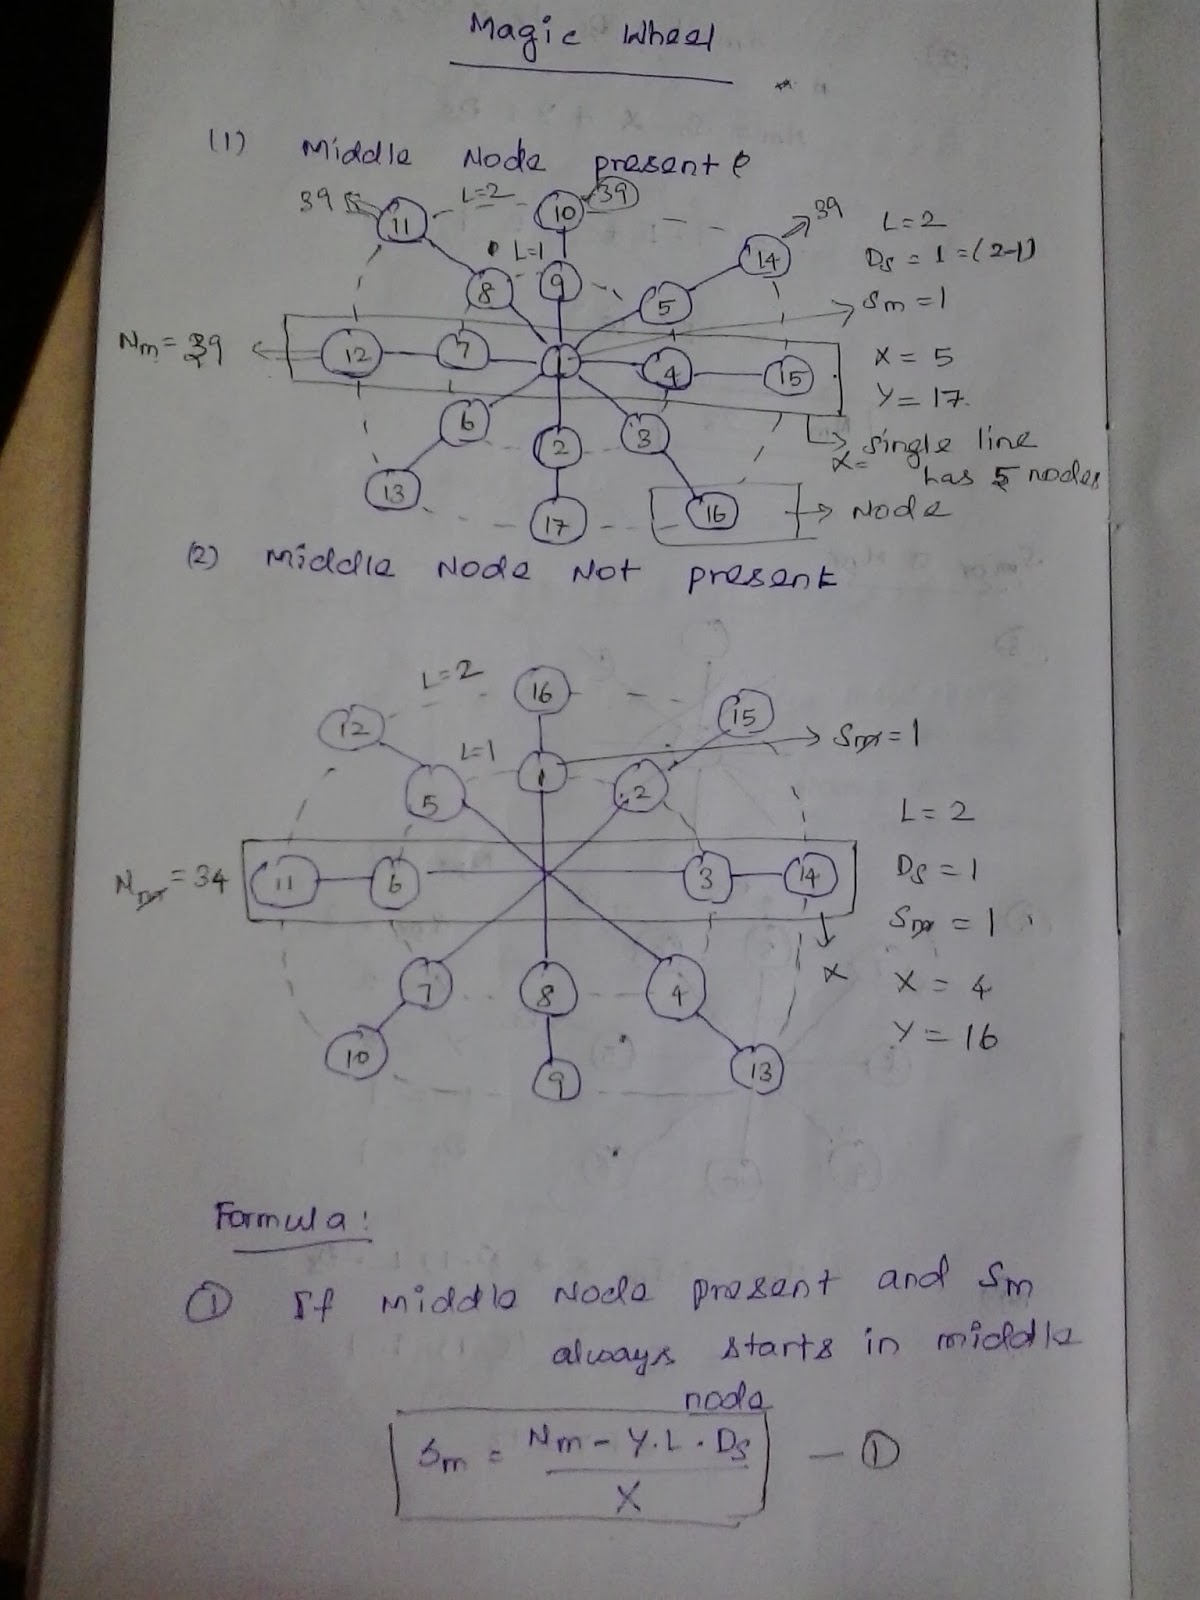 Magic Wheel
(1) Middle Node present
39 11 L=2 10 39 14 39
L=2
L=1
8 9 5
Ds = 1 = (2-1)
Sm = 1
Nm = 39 12 7 1 4 15
X = 5
Y = 17
6 2 3
X = single line
has 5 nodes
13 17 16 → Node
(2) Middle Node Not present
L=2
12 16 15
L=1
5 1 2 → Sm = 1
L = 2
N = 34 11 6 3 14
Ds = 1
Sm = 1
X
7 8 4
X = 4
Y = 16
10 9 13
Formula:
① If middle Node present and Sm
always starts in middle
node
Sm = Nm - Y.L.Ds / X — ①